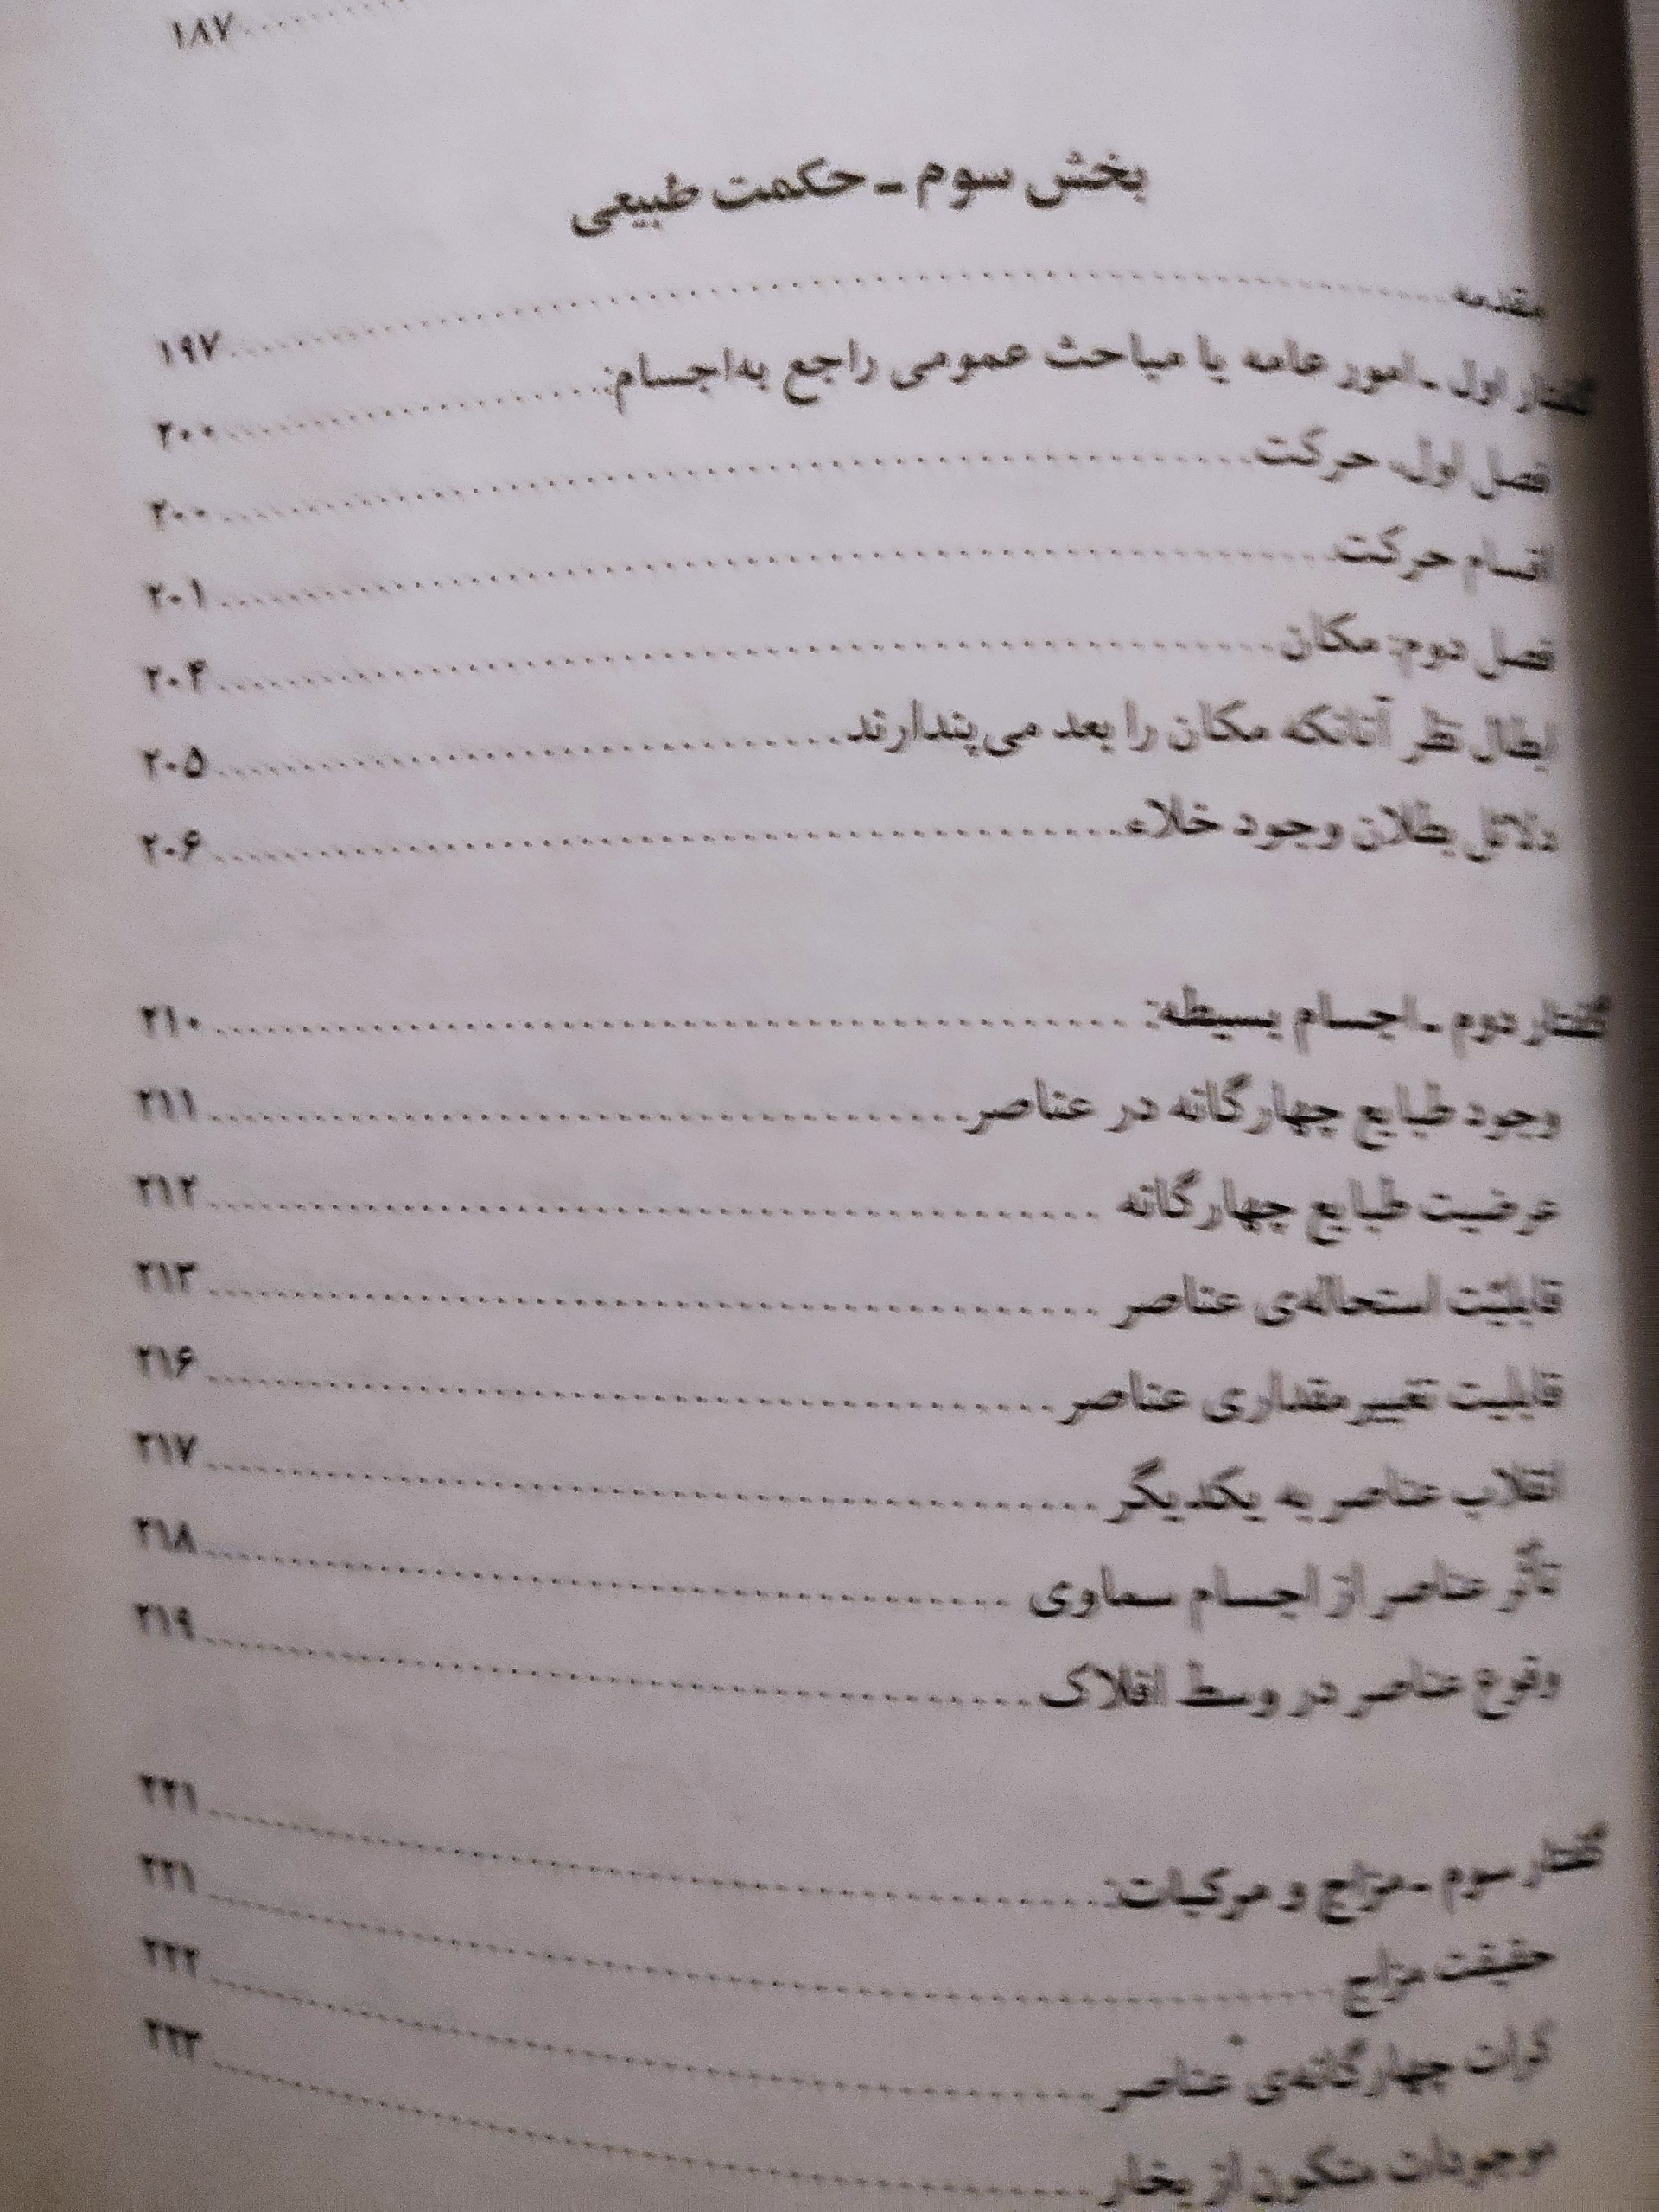 ۱۸۷
بخش سوم - حکمت طبیعی
مقدمه ۱۹۷
گفتار اول - امور عامه یا مباحث عمومی راجع به‌اجسام: ۲۰۰
فصل اول، حرکت ۲۰۰
اقسام حرکت ۲۰۱
فصل دوم: مکان ۲۰۴
ابطال نظر آنانکه مکان را بعد می‌پندارند ۲۰۵
دلائل بطلان وجود خلاء ۲۰۶
گفتار دوم - اجسام بسیطه: ۲۱۰
وجود طبایع چهارگانه در عناصر ۲۱۱
عرضیت طبایع چهارگانه ۲۱۲
قابلیّت استحاله‌ی عناصر ۲۱۳
قابلیت تغییر مقداری عناصر ۲۱۶
انقلاب عناصر به یکدیگر ۲۱۷
تأثر عناصر از اجسام سماوی ۲۱۸
وقوع عناصر در وسط افلاک ۲۱۹
گفتار سوم - مزاج و مرکبات: ۲۲۱
حقیقت مزاج ۲۲۱
کرات چهارگانه‌ی عناصر ۲۲۲
موجودات متکون از بخار ۲۲۳